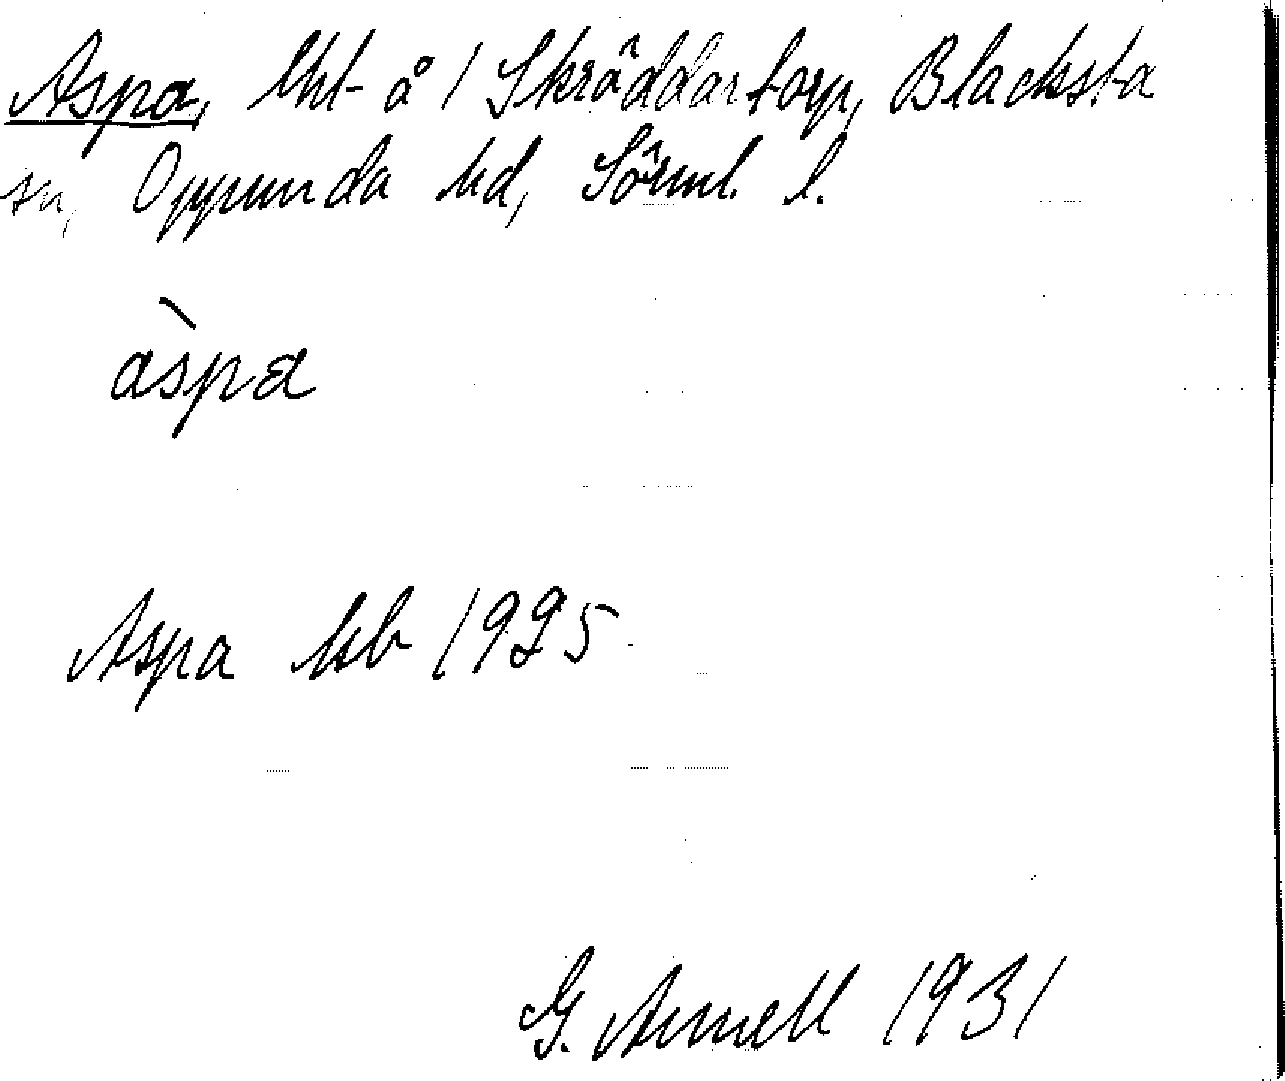 Aspa, lht å 1 Skräddartorp, Blacksta
sn, Oppunda hd, Sörml. l.
àspa
Aspa hb 1925.
G. Arnell 1931